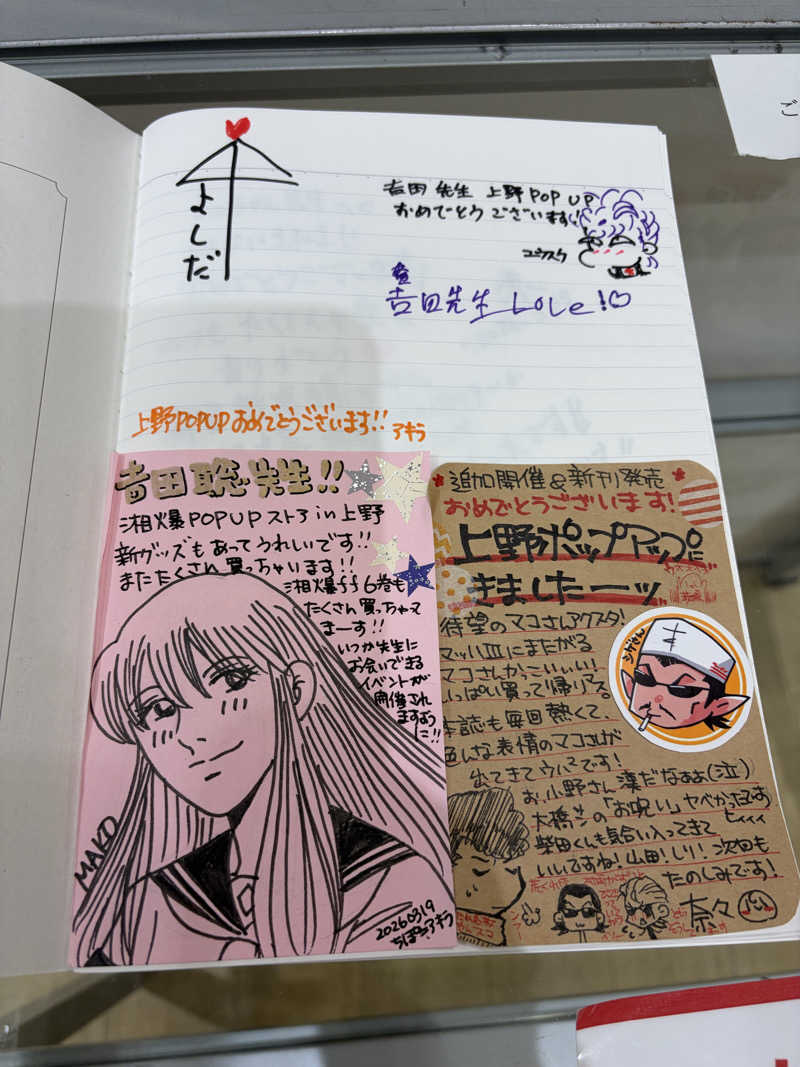 よしだ
吉田先生 上野POP UP
おめでとうございます!
ユウスケ
吉田先生Love!♡
上野POPUPおめでとうございます!! アキラ
吉田聡先生!!
湘爆POPUPストアin上野
新グッズもあってうれしいです!!
またたくさん買っちゃいます!!
湘爆ff6巻も
たくさん買っちゃって
まーす!!
いつか先生に
お会いできる
イベントが
開催され
ますよう
に!!
MAKO
20260319
アキラ
追加開催&新刊発売
おめでとうございます!
上野ポップアップに
きましたーッ
待望のマコさんアクスタ!
マッハⅢにまたがる
マコさんかっこいいい!
いっぱい買って帰リマス。
本誌も毎回熱くて、
色んな表情のマコさんが
出てきてウハ²です!
おっ小野さん漢だなぁぁ(泣)
大橋さんの「お呪い」ヤベかったです
ヒィィィ
柴田くんも気合い入ってきて
いいですね!山田!しリ!次回も
たのしみです!
奈々
シゲさん
ご